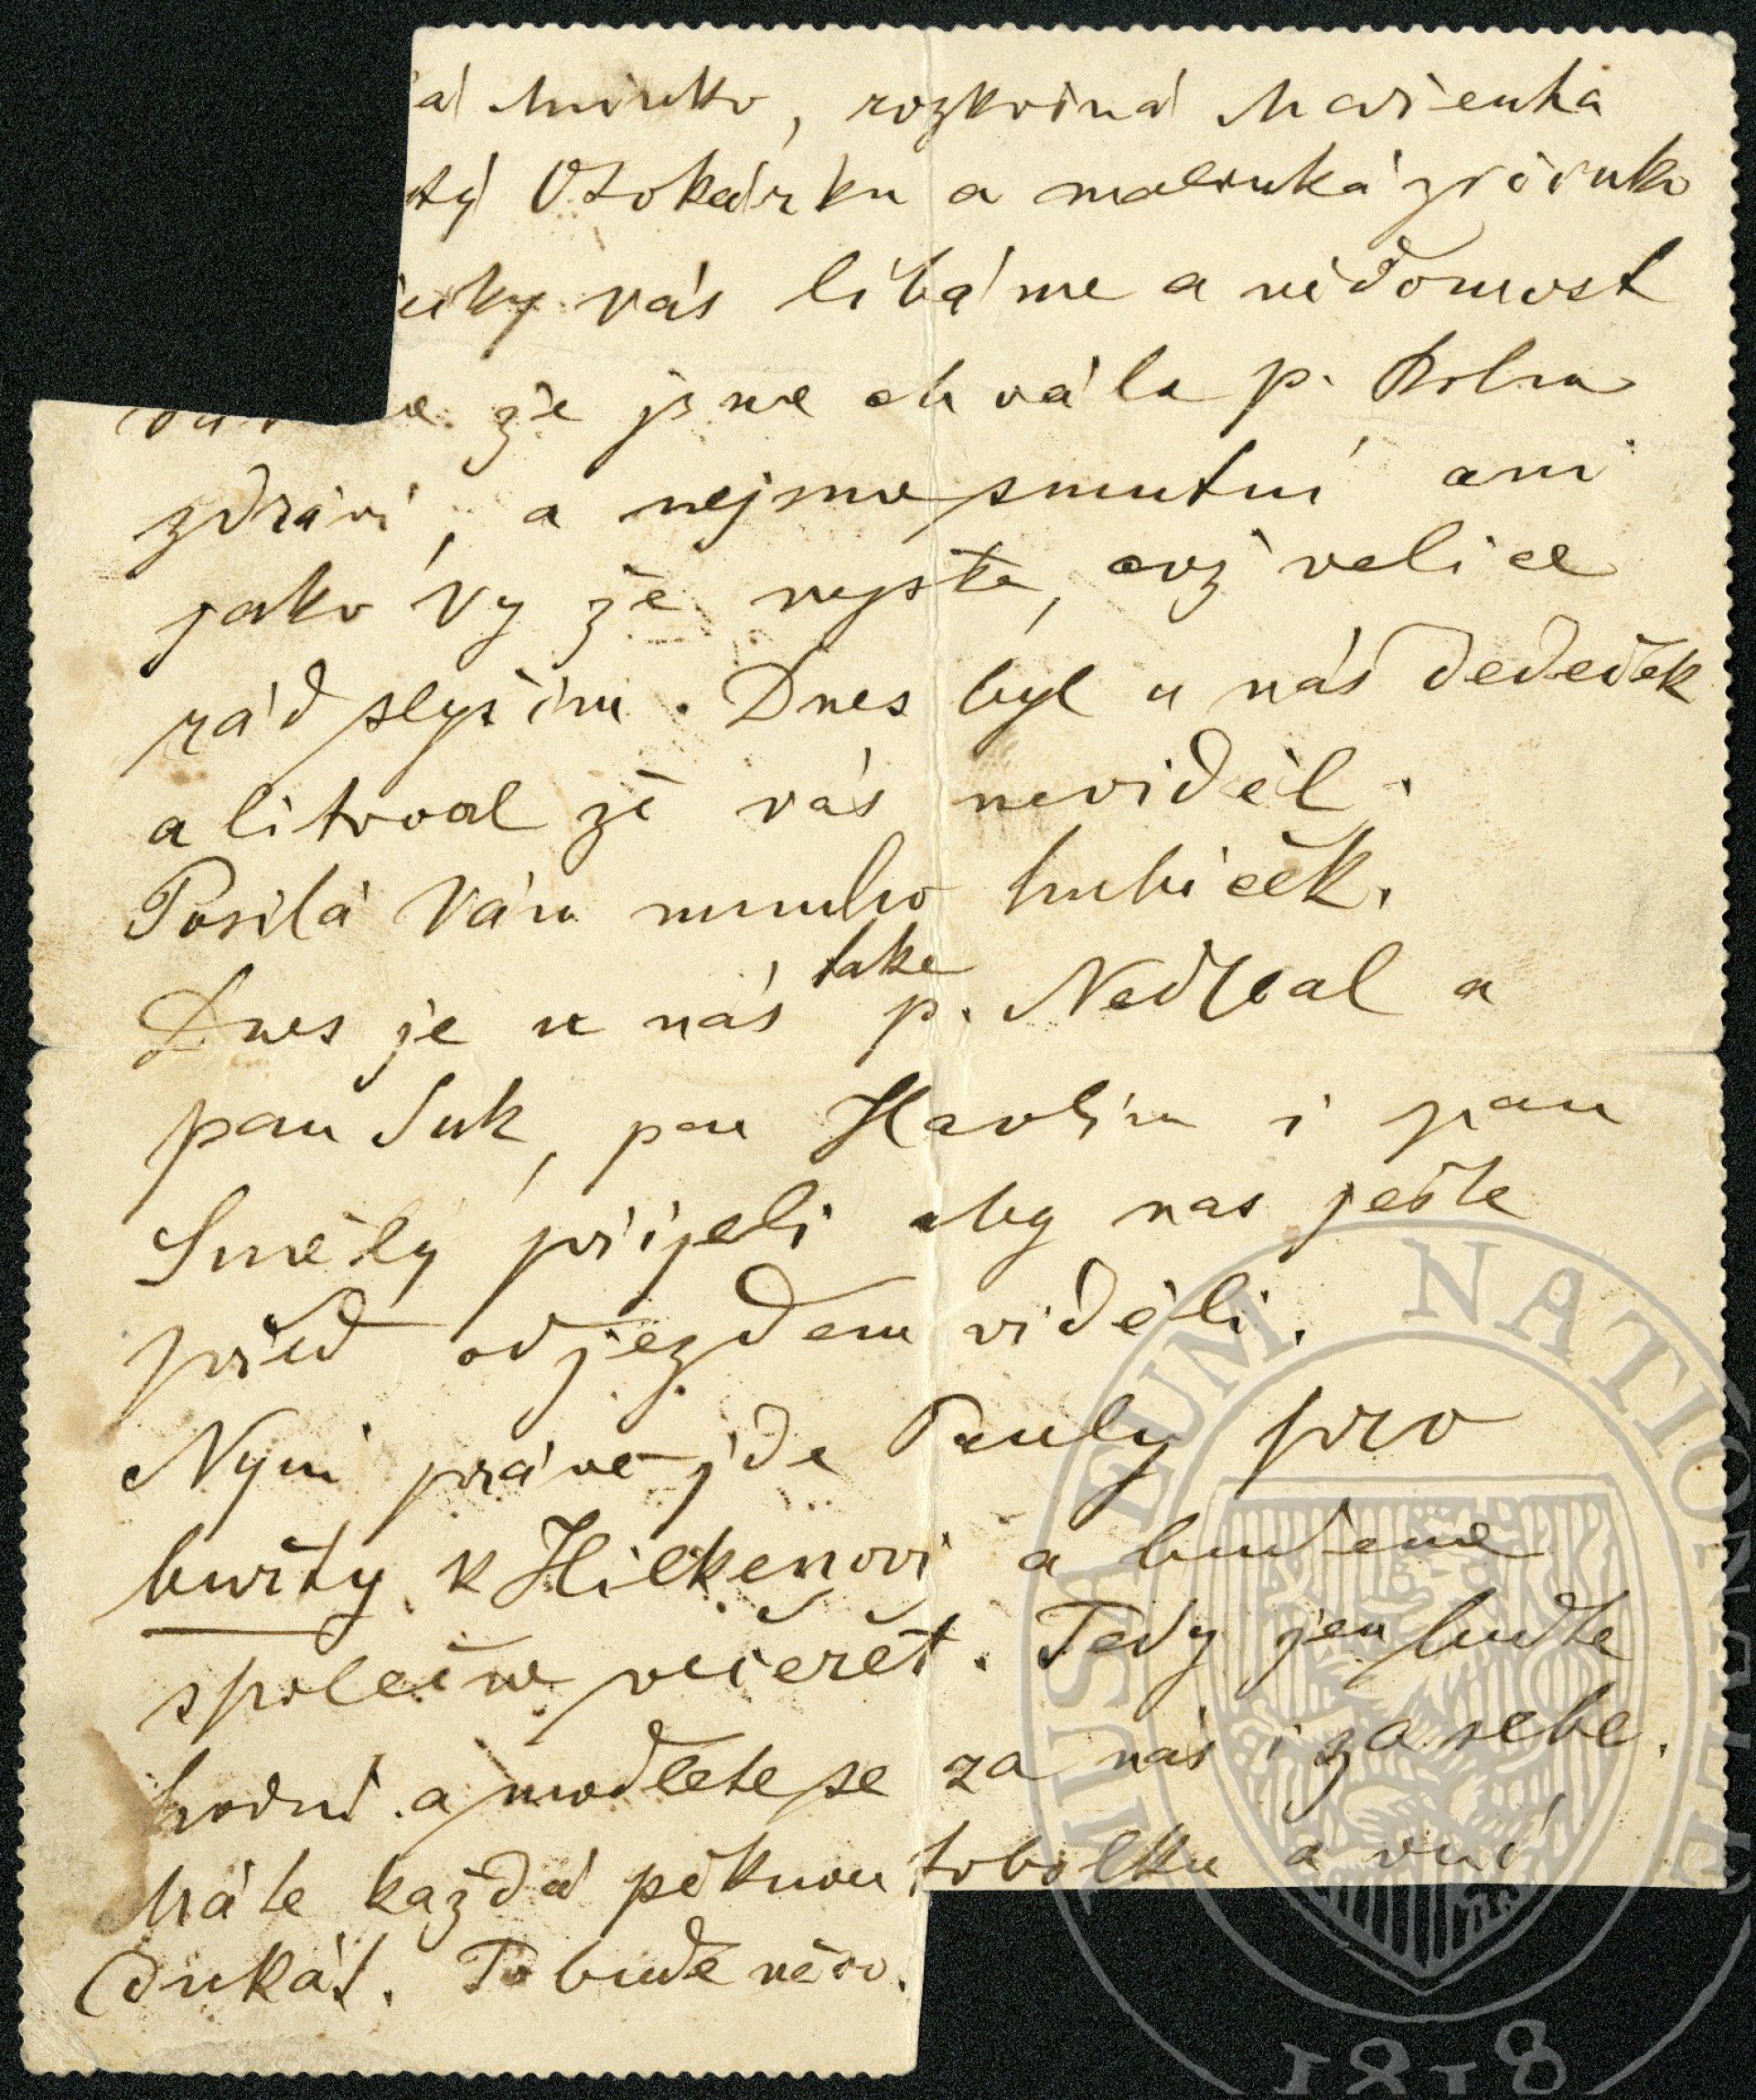 á Minko, rozkošná Mařenka
tý Otokárku a malinká Zošinko
líbáme a vědomost
že jsme chvála p. Bohu
zdrávi, a nejsme smutní ani
jako Vy že nejste, což velice
rád slyším. Dnes byl u nás dedeček
a litoval že vás neviděl.
Posilá Vám mnoho hubiček.
Dnes je u nás take p. Nedbal a
pan Suk, pan Havlín i pan
Smělý přijeli aby nas ješte
před odjezdem viděli.
Nyni práve jde Pauly pro
buřty k Hilkenovi a budeme
společne večeřet. Tedy jen buďte
hodné a modlete se za nás i za sebe.
Máte každá pěknou tobolku a v ní
dukát. To bude něco.
MUSAEUM NATIONALE
1818